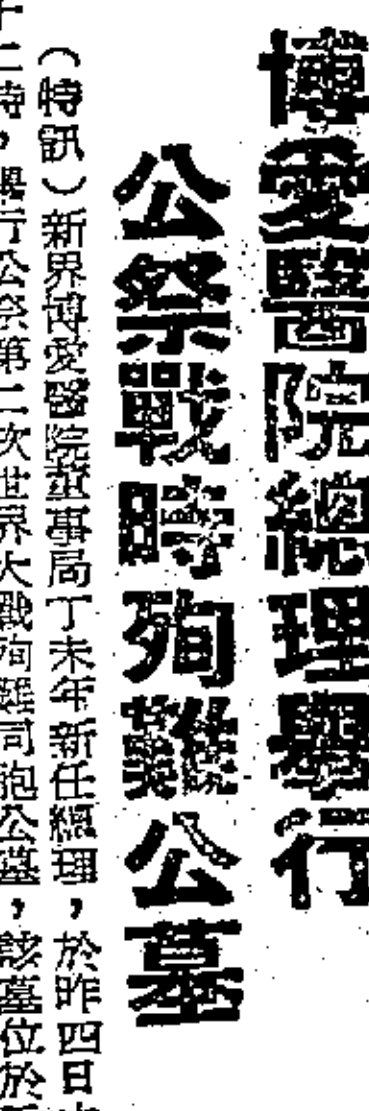 博愛醫院總理舉行
公祭戰時殉難公墓
（特訊）新界博愛醫院董事局丁未年新任總理，於昨四日
十二時，舉行公祭第二次世界大戰殉難同胞公墓，該墓位於